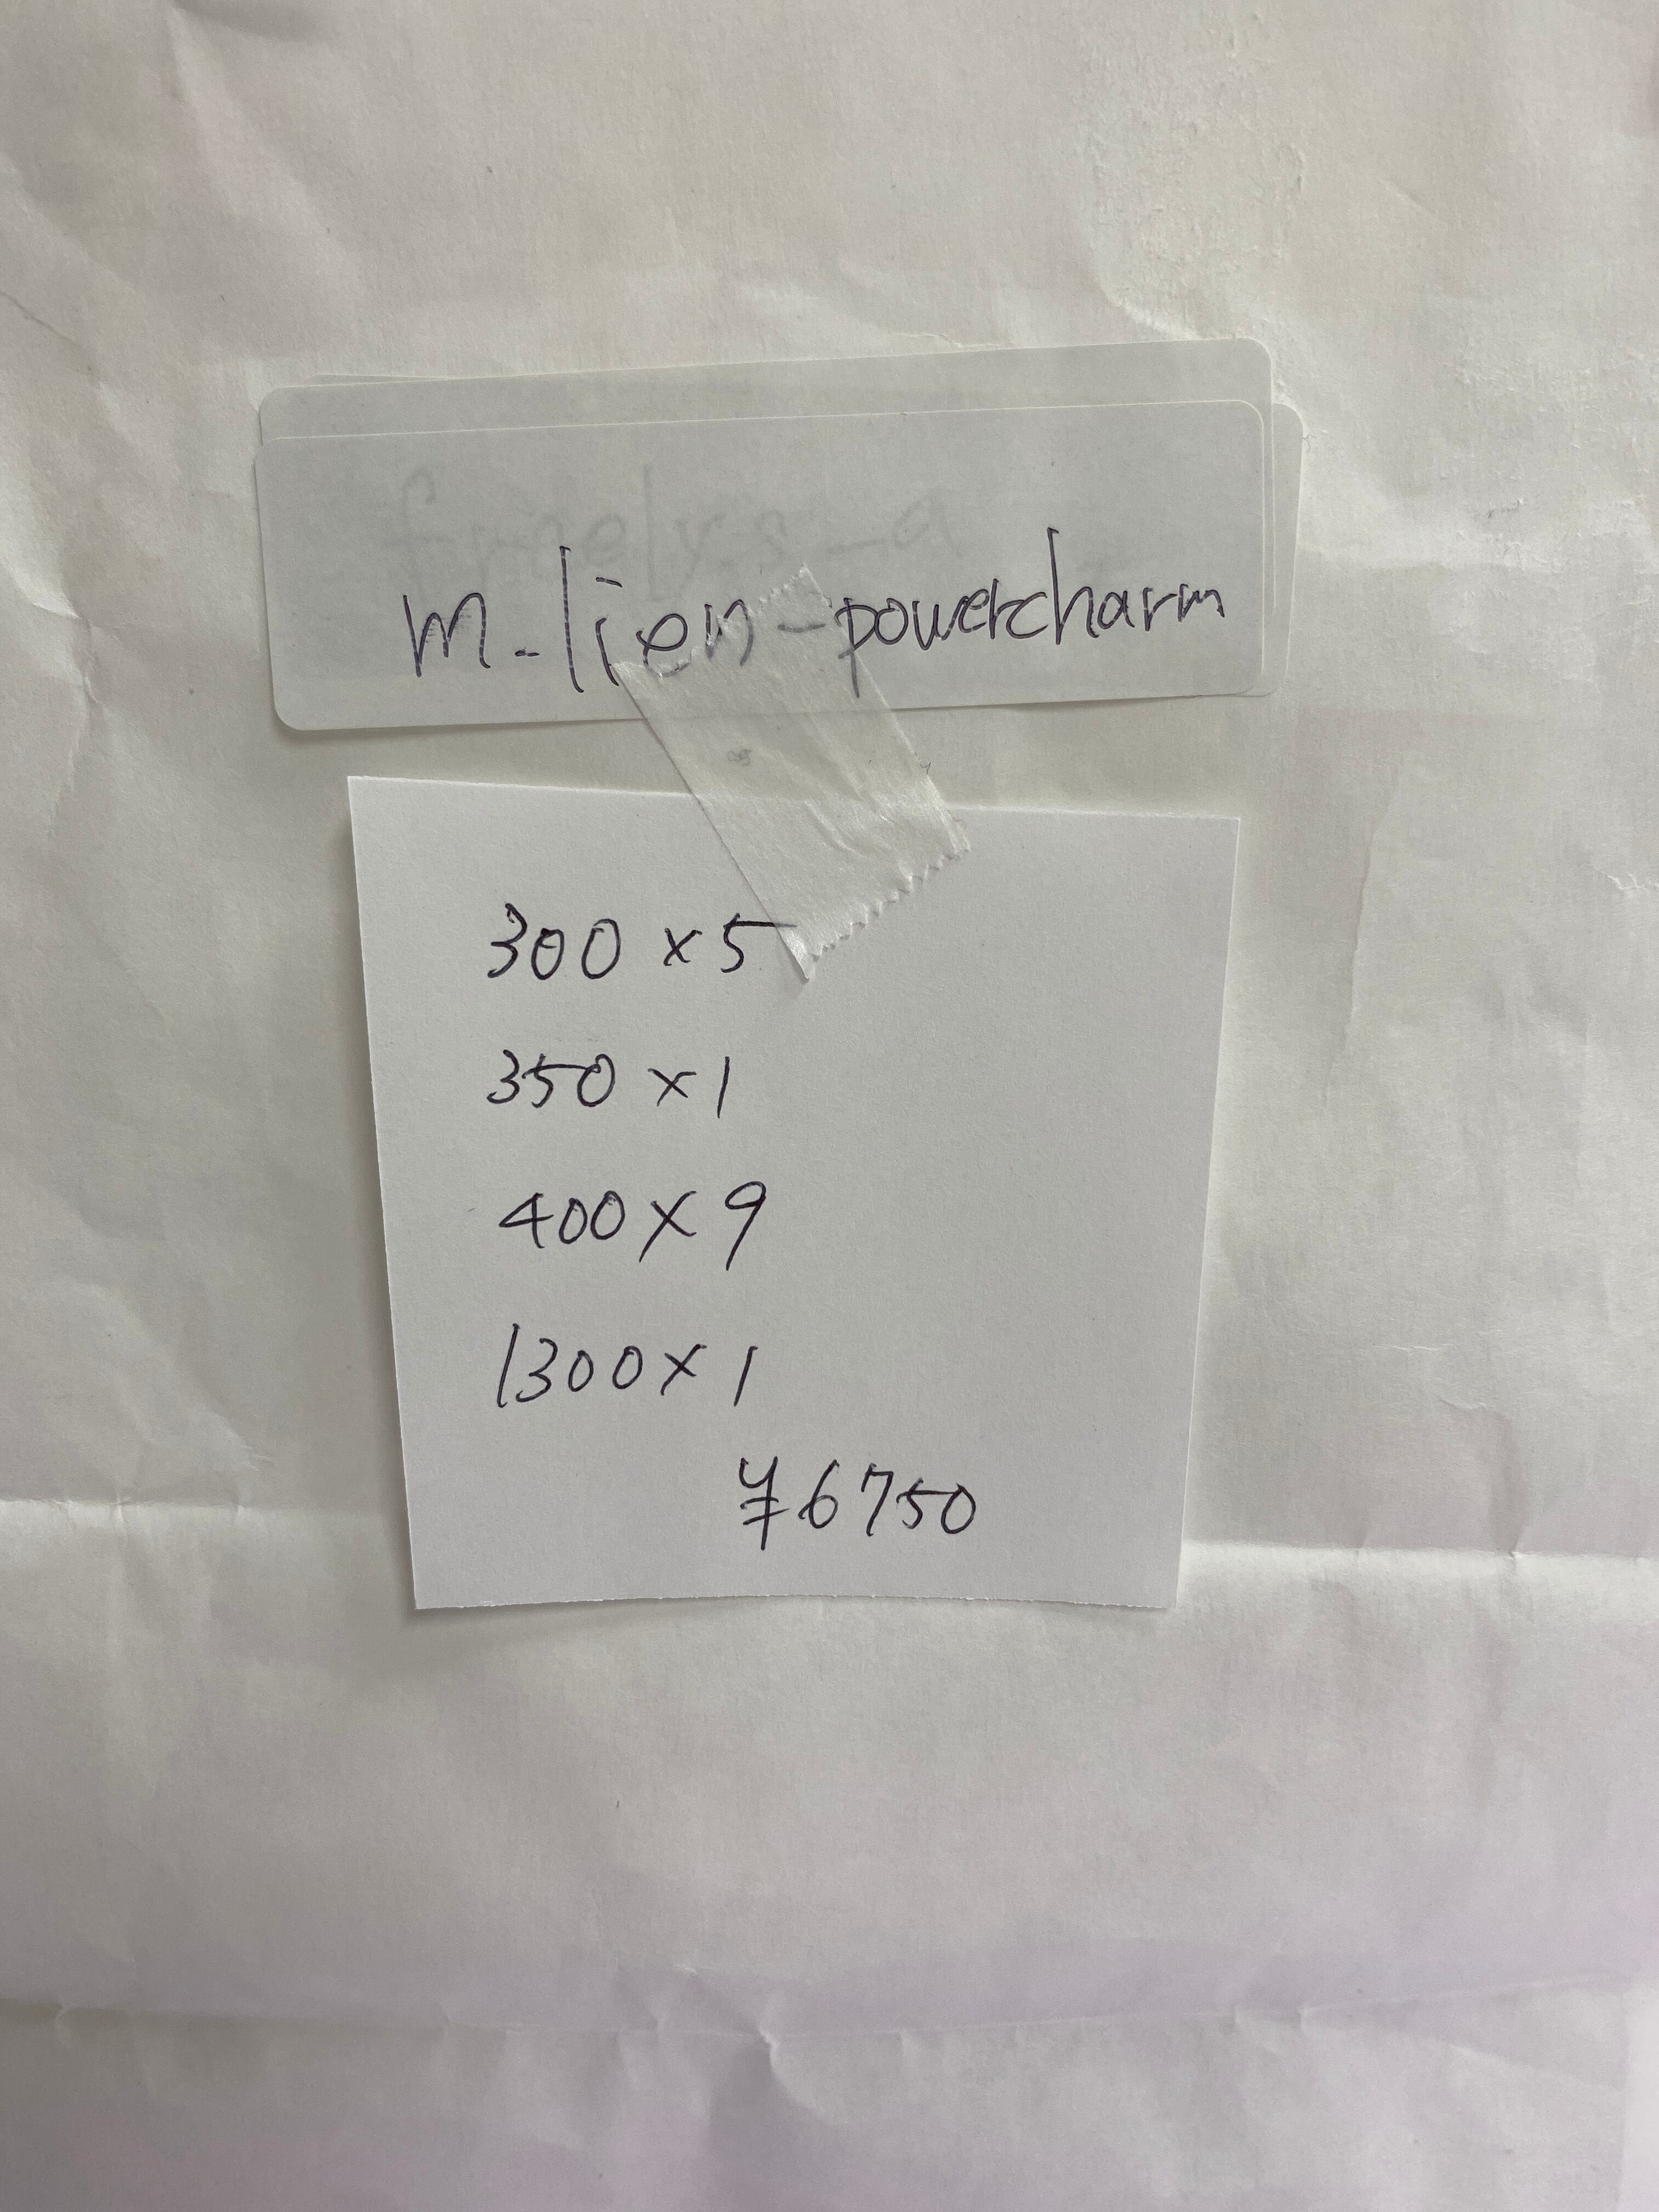 m-lien-powercharm
300×5
350×1
400×9
1300×1
¥6750